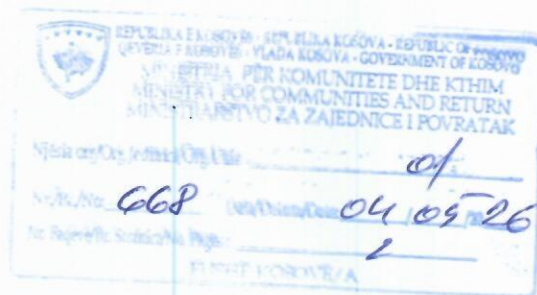 REPUBLIKA E KOSOVËS - REPUBLIKA KOSOVA - REPUBLIC OF KOSOVO
QEVERIA E KOSOVËS - VLADA KOSOVA - GOVERNMENT OF KOSOVO
MINISTRIA PËR KOMUNITETE DHE KTHIM
MINISTRY FOR COMMUNITIES AND RETURN
MINISTARSTVO ZA ZAJEDNICE I POVRATAK
Njësia org/Org. Jedinica/Org. Unit: 01
Nr./Br./No: 668 Data/Datum/Date: 04 05 26
Nr. Faqeve/Br. Stranica/No. Pages: 2
FUSHË KOSOVË/A